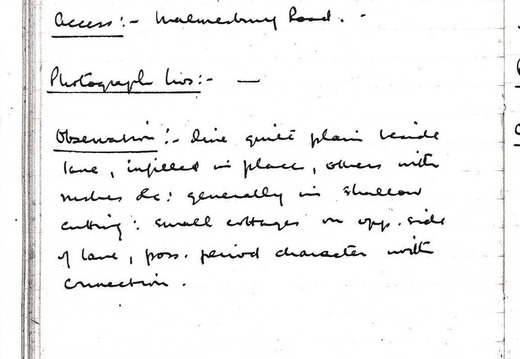 Access:- Malmesbury Road. -
Photograph Nos:- —
Observation:- Line quite plain beside
lane, infilled in place, others with
rushes &c: generally in shallow
cutting: small cottages on opp. side
of lane, poss. period character with
connection.